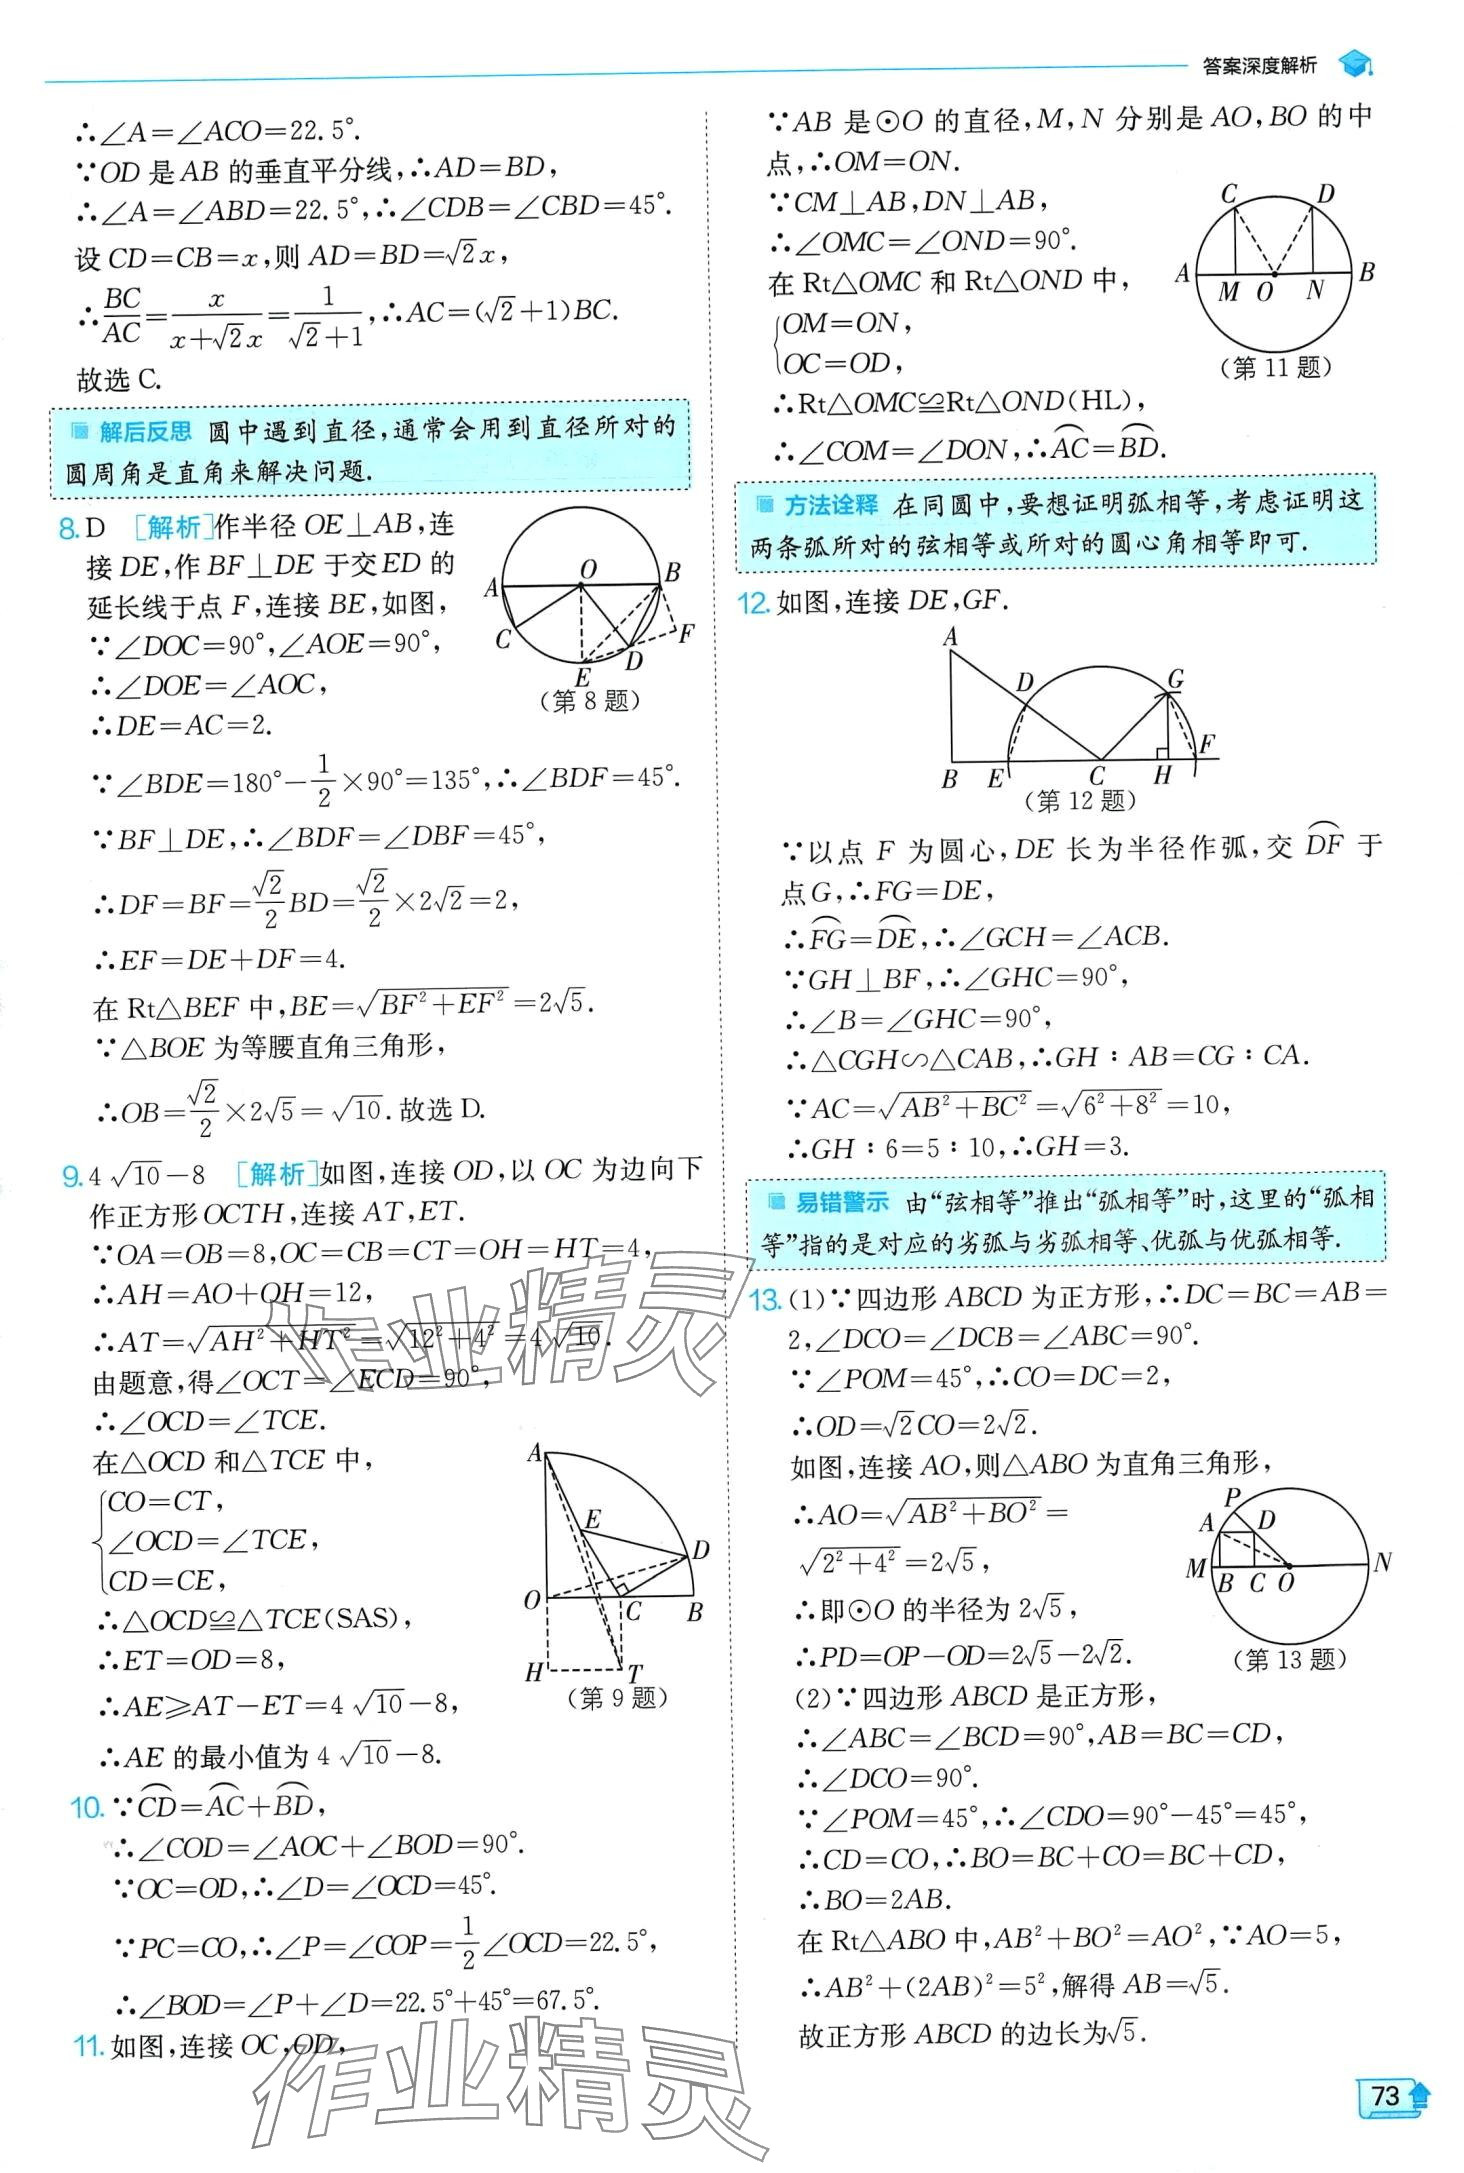 答案深度解析
∴∠A=∠ACO=22.5°.
∵OD 是 AB 的垂直平分线,∴AD=BD,
∴∠A=∠ABD=22.5°,∴∠CDB=∠CBD=45°.
设 CD=CB=x,则 AD=BD=√2x,
∴BC/AC=x/(x+√2x)=1/(√2+1),∴AC=(√2+1)BC.
故选 C.
解后反思 圆中遇到直径,通常会用到直径所对的
圆周角是直角来解决问题.
8. D [解析]作半径 OE⊥AB,连
接 DE,作 BF⊥DE 于交 ED 的
延长线于点 F,连接 BE,如图,
∵∠DOC=90°,∠AOE=90°,
∴∠DOE=∠AOC,
∴DE=AC=2.
A
O
B
C
E
D
F
(第 8 题)
∵∠BDE=180°-1/2×90°=135°,∴∠BDF=45°.
∵BF⊥DE,∴∠BDF=∠DBF=45°,
∴DF=BF=√2/2BD=√2/2×2√2=2,
∴EF=DE+DF=4.
在 Rt△BEF 中,BE=√(BF²+EF²)=2√5.
∵△BOE 为等腰直角三角形,
∴OB=√2/2×2√5=√10.故选 D.
9. 4√10-8 [解析]如图,连接 OD,以 OC 为边向下
作正方形 OCTH,连接 AT,ET.
∵OA=OB=8,OC=CB=CT=OH=HT=4,
∴AH=AO+OH=12,
∴AT=√(AH²+HT²)=√(12²+4²)=4√10.
由题意,得∠OCT=∠ECD=90°,
∴∠OCD=∠TCE.
在△OCD 和△TCE 中,
{CO=CT,
∠OCD=∠TCE,
CD=CE,
∴△OCD≌△TCE(SAS),
∴ET=OD=8,
∴AE≥AT-ET=4√10-8,
∴AE 的最小值为 4√10-8.
A
E
D
O
C
B
H
T
(第 9 题)
10. ∵⌒CD=⌒AC+⌒BD,
∴∠COD=∠AOC+∠BOD=90°.
∵OC=OD,∴∠D=∠OCD=45°.
∵PC=CO,∴∠P=∠COP=1/2∠OCD=22.5°,
∴∠BOD=∠P+∠D=22.5°+45°=67.5°.
11. 如图,连接 OC,OD,
∵AB 是⊙O 的直径,M,N 分别是 AO,BO 的中
点,∴OM=ON.
∵CM⊥AB,DN⊥AB,
∴∠OMC=∠OND=90°.
在 Rt△OMC 和 Rt△OND 中,
{OM=ON,
OC=OD,
∴Rt△OMC≌Rt△OND(HL),
∴∠COM=∠DON,∴⌒AC=⌒BD.
C
D
A
M
O
N
B
(第 11 题)
方法诠释 在同圆中,要想证明弧相等,考虑证明这
两条弧所对的弦相等或所对的圆心角相等即可.
12. 如图,连接 DE,GF.
A
D
G
F
B
E
C
H
(第 12 题)
∵以点 F 为圆心,DE 长为半径作弧,交 ⌒DF 于
点 G,∴FG=DE,
∴⌒FG=⌒DE,∴∠GCH=∠ACB.
∵GH⊥BF,∴∠GHC=90°,
∴∠B=∠GHC=90°,
∴△CGH∽△CAB,∴GH:AB=CG:CA.
∵AC=√(AB²+BC²)=√(6²+8²)=10,
∴GH:6=5:10,∴GH=3.
易错警示 由“弦相等”推出“弧相等”时,这里的“弧相
等”指的是对应的劣弧与劣弧相等、优弧与优弧相等.
13. (1)∵四边形 ABCD 为正方形,∴DC=BC=AB=
2,∠DCO=∠DCB=∠ABC=90°.
∵∠POM=45°,∴CO=DC=2,
∴OD=√2CO=2√2.
如图,连接 AO,则△ABO 为直角三角形,
∴AO=√(AB²+BO²)=
√(2²+4²)=2√5,
∴即⊙O 的半径为 2√5,
∴PD=OP-OD=2√5-2√2.
P
A
D
M
B
C
O
N
(第 13 题)
(2)∵四边形 ABCD 是正方形,
∴∠ABC=∠BCD=90°,AB=BC=CD,
∴∠DCO=90°.
∵∠POM=45°,∴∠CDO=90°-45°=45°,
∴CD=CO,∴BO=BC+CO=BC+CD,
∴BO=2AB.
在 Rt△ABO 中,AB²+BO²=AO²,∵AO=5,
∴AB²+(2AB)²=5²,解得 AB=√5.
故正方形 ABCD 的边长为√5.
作业精灵
作业精灵
73